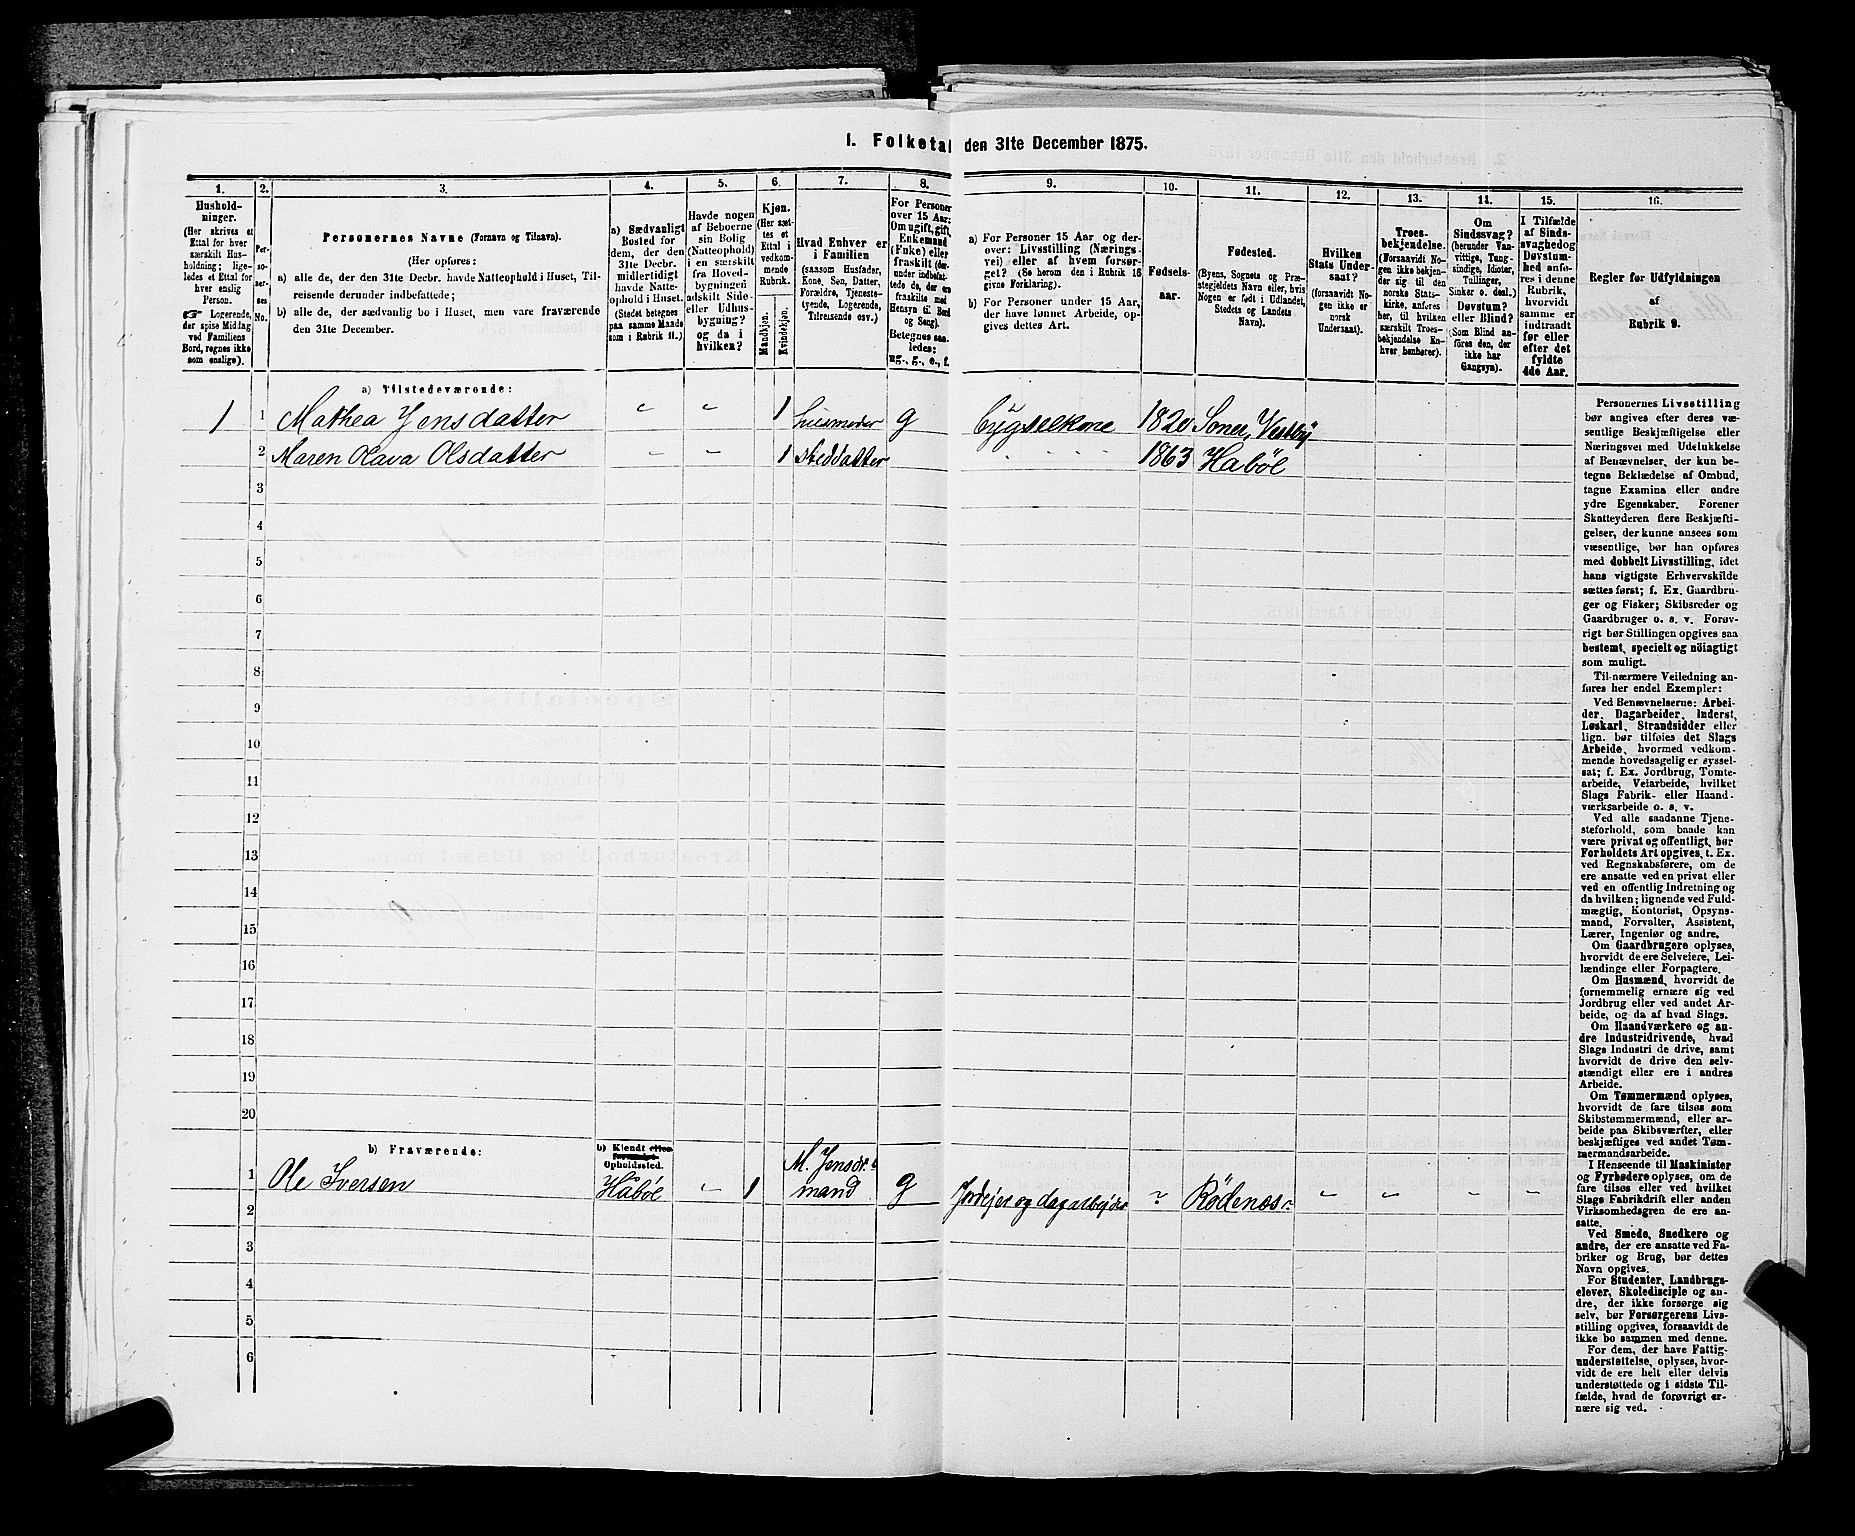 1. Folketal den 31te December 1875.
1.
2.
3.
4.
5.
6.
7.
8.
9.
10.
11.
12.
13.
14.
15.
16.
Hushold-
ninger.
(Her skrives et
Ettal for hver
særskilt Hus-
holdning; lige-
ledes et Ettal for
hver enslig
Person.
☞ Logerende,
der spise Middag
ved Familiens
Bord, regnes ikke
som enslige).
Per-
so-
ner-
nes
No.
Personernes Navne (Fornavn og Tilnavn).
(Her opføres:
a) alle de, der den 31te Decbr. havde Natteophold i Huset, Til-
reisende derunder indbefattede;
b) alle de, der sædvanlig bo i Huset, men vare fraværende
den 31te December.
a) Sædvanligt
Bosted for
dem, der den
31te Decbr.
midlertidigt
havde Natte-
ophold i Huset.
(Stedet betegnes
paa samme Maade
som i Rubrik 11.)
Havde nogen
af Beboerne
sin Bolig
(Natteophold)
i en særskilt
fra Hoved-
bygningen
adskilt Side-
eller Udhus-
bygning?
og da i
hvilken?
Kjøn.
(Her sæt-
tes et
Ettal i
vedkom-
mende
Rubrik.
Mandkjøn.
Kvindekjøn.
Hvad Enhver er
i Familien
(saasom Husfader,
Kone, Søn, Datter,
Forældre, Tjeneste-
tyende, Logerende,
Tilreisende osv.)
For Personer
over 15 Aar:
Om ugift, gift,
Enkemand
(Enke) eller
fraskilt (der-
under indbefat-
tede de, der ere
fraskilte med
Hensyn til Bord
og Seng).
Betegnes saa-
ledes:
ug., g., e., f.
a) For Personer 15 Aar og der-
over: Livsstilling (Nærings-
vei) eller af hvem forsør-
get? (Se herom den i Rubrik 16
givne Forklaring).
b) For Personer under 15 Aar,
der have lønnet Arbeide, op-
gives dettes Art.
Fødsels-
aar.
Fødested.
(Byens, Sognets og Præ-
stegjeldets Navn eller, hvis
Nogen er født i Udlandet,
Stedets og Landets
Navn).
Hvilken
Stats Under-
saat?
(forsaavidt No-
gen ikke er
norsk
Undersaat).
Troes-
bekjendelse.
(Forsaavidt No-
gen ikke bekjen-
der sig til den
norske Stats-
kirke, anføres
her, til hvilken
særskilt Troes-
bekjendelse En-
hver henhører).
Om
Sindssvag?
(herunder Van-
vittige, Tung-
sindige, Idioter,
Tullinger,
Sinker o. desl.)
Døvstum?
eller Blind?
(Som Blind an-
føres den, der
ikke har
Gangsyn).
I Tilfælde
af Sinds-
svaghed og
Døvstum-
hed anfø-
res i denne
Rubrik,
hvorvidt
samme er
indtraadt
før eller
efter det
fyldte
4de Aar.
Regler for Udfyldningen
af
Rubrik 9.
a) Tilstedeværende:
1 1 Mathea Jensdatter " " 1 husmoder g bygselkone 1820 Soner, Vestby
2 Maren Olava Olsdatter " " 1 steddatter " " " " 1863 Habøl
3
4
5
6
7
8
9
10
11
12
13
14
15
16
17
18
19
20
b) Fraværende:
b) Kjendt eller
formodet
Opholdssted.
1 Ole Iversen Habøl " 1 M. Jensdr.s mand g Jordejer og dagarbejder ? Rödenæs " " " "
2
3
4
5
6
Personernes Livsstilling
bør angives efter deres væ-
sentlige Beskjæftigelse eller
Næringsvei med Udelukkelse
af Benævnelser, der kun be-
tegne Beklædelse af Ombud,
tagne Examina eller andre
ydre Egenskaber. Forener
Skatteyderen flere Beskjæfti-
gelser, der kunne ansees som
væsentlige, bør han opføres
med dobbelt Livsstilling, idet
hans vigtigste Erhvervskilde
sættes først; f. Ex. Gaardbru-
ger og Fisker; Skibsreder og
Gaardbruger o. s. v. Forøv-
rigt bør Stillingen opgives saa
bestemt, specielt og nöiagtigt
som muligt.
Til nærmere Veiledning an-
føres her endel Exempler:
Ved Benævnelserne: Arbei-
der, Dagarbeider, Inderst,
Løskarl, Strandsidder eller
lign. bør tilføies det Slags
Arbeide, hvormed vedkom-
mende hovedsagelig er syssel-
sat; f. Ex. Jordbrug, Tomte-
arbeide, Veiarbeide, hvilket
Slags Fabrik- eller Haand-
værksarbeide o. s. v.
Ved alle saadanne Tjene-
steforhold, som baade kan
være privat og offentligt, bør
Forholdets Art opgives, t. Ex.
ved Regnskabsførere, om de
ere ansatte ved en privat eller
ved en offentlig Indretning og
da hvilken; lignende ved Fuld-
mægtig, Kontorist, Opsyns-
mand, Forvalter, Assistent,
Lærer, Ingeniør og andre.
Om Gaardbrugere oplyses,
hvorvidt de ere Selveiere, Lei-
lændinge eller Forpagtere.
Om Husmænd, hvorvidt de
fornemmelig ernære sig ved
Jordbrug eller ved andet Ar-
beide, og da af hvad Slags.
Om Haandværkere og an-
dre Industridrivende, hvad
Slags Industri de drive, samt
hvorvidt de drive den selv-
stændigt eller ere i andres
Arbeide.
Om Tømmermænd oplyses,
hvorvidt de fare tilsøs som
Skibstømmermænd, eller ar-
beide paa Skibsværfter, eller
beskjæftiges ved andet Tøm-
mermandsarbeide.
I Henseende til Maskinister
og Fyrbødere oplyses, om de
fare tilsøs eller ved hvilket
Slags Fabrikdrift eller anden
Virksomhedsgren de ere an-
satte.
Ved Smede, Snedkere og
andre, der ere ansatte ved Fa-
briker og Brug, bør dettes
Navn opgives.
For Studenter, Landbrugs-
elever, Skoledisciple og an-
dre, der ikke forsørge sig
selv, bør Forsørgerens Livs-
stilling opgives, forsaavidt de
ikke bo sammen med denne.
For dem, der have Fattig-
understøttelse, oplyses, hvor-
vidt de ere helt eller delvis
understøttede og i sidste Til-
fælde, hvad de forøvrigt er-
nære sig ved.